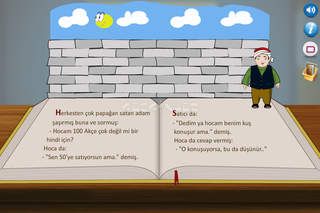 Herkesten çok papağan satan adam
şaşırmış buna ve sormuş:
- Hocam 100 Akçe çok değil mi bir
hindi için?
Hoca da:
- "Sen 50'ye satıyorsun ama." demiş.
Satıcı da:
- "Dedim ya hocam benim kuş
konuşur ama." demiş.
Hoca da cevap vermiş:
- "O konuşuyorsa, bu da düşünür.."